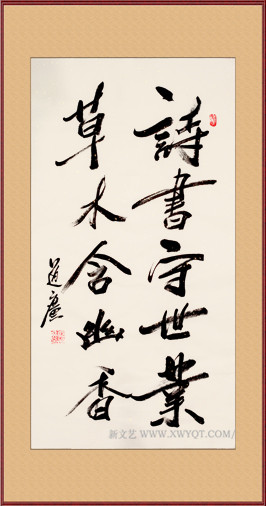 詩書守世業
草木含幽香
道廬
新文艺 WWW.XWYQT.COM/